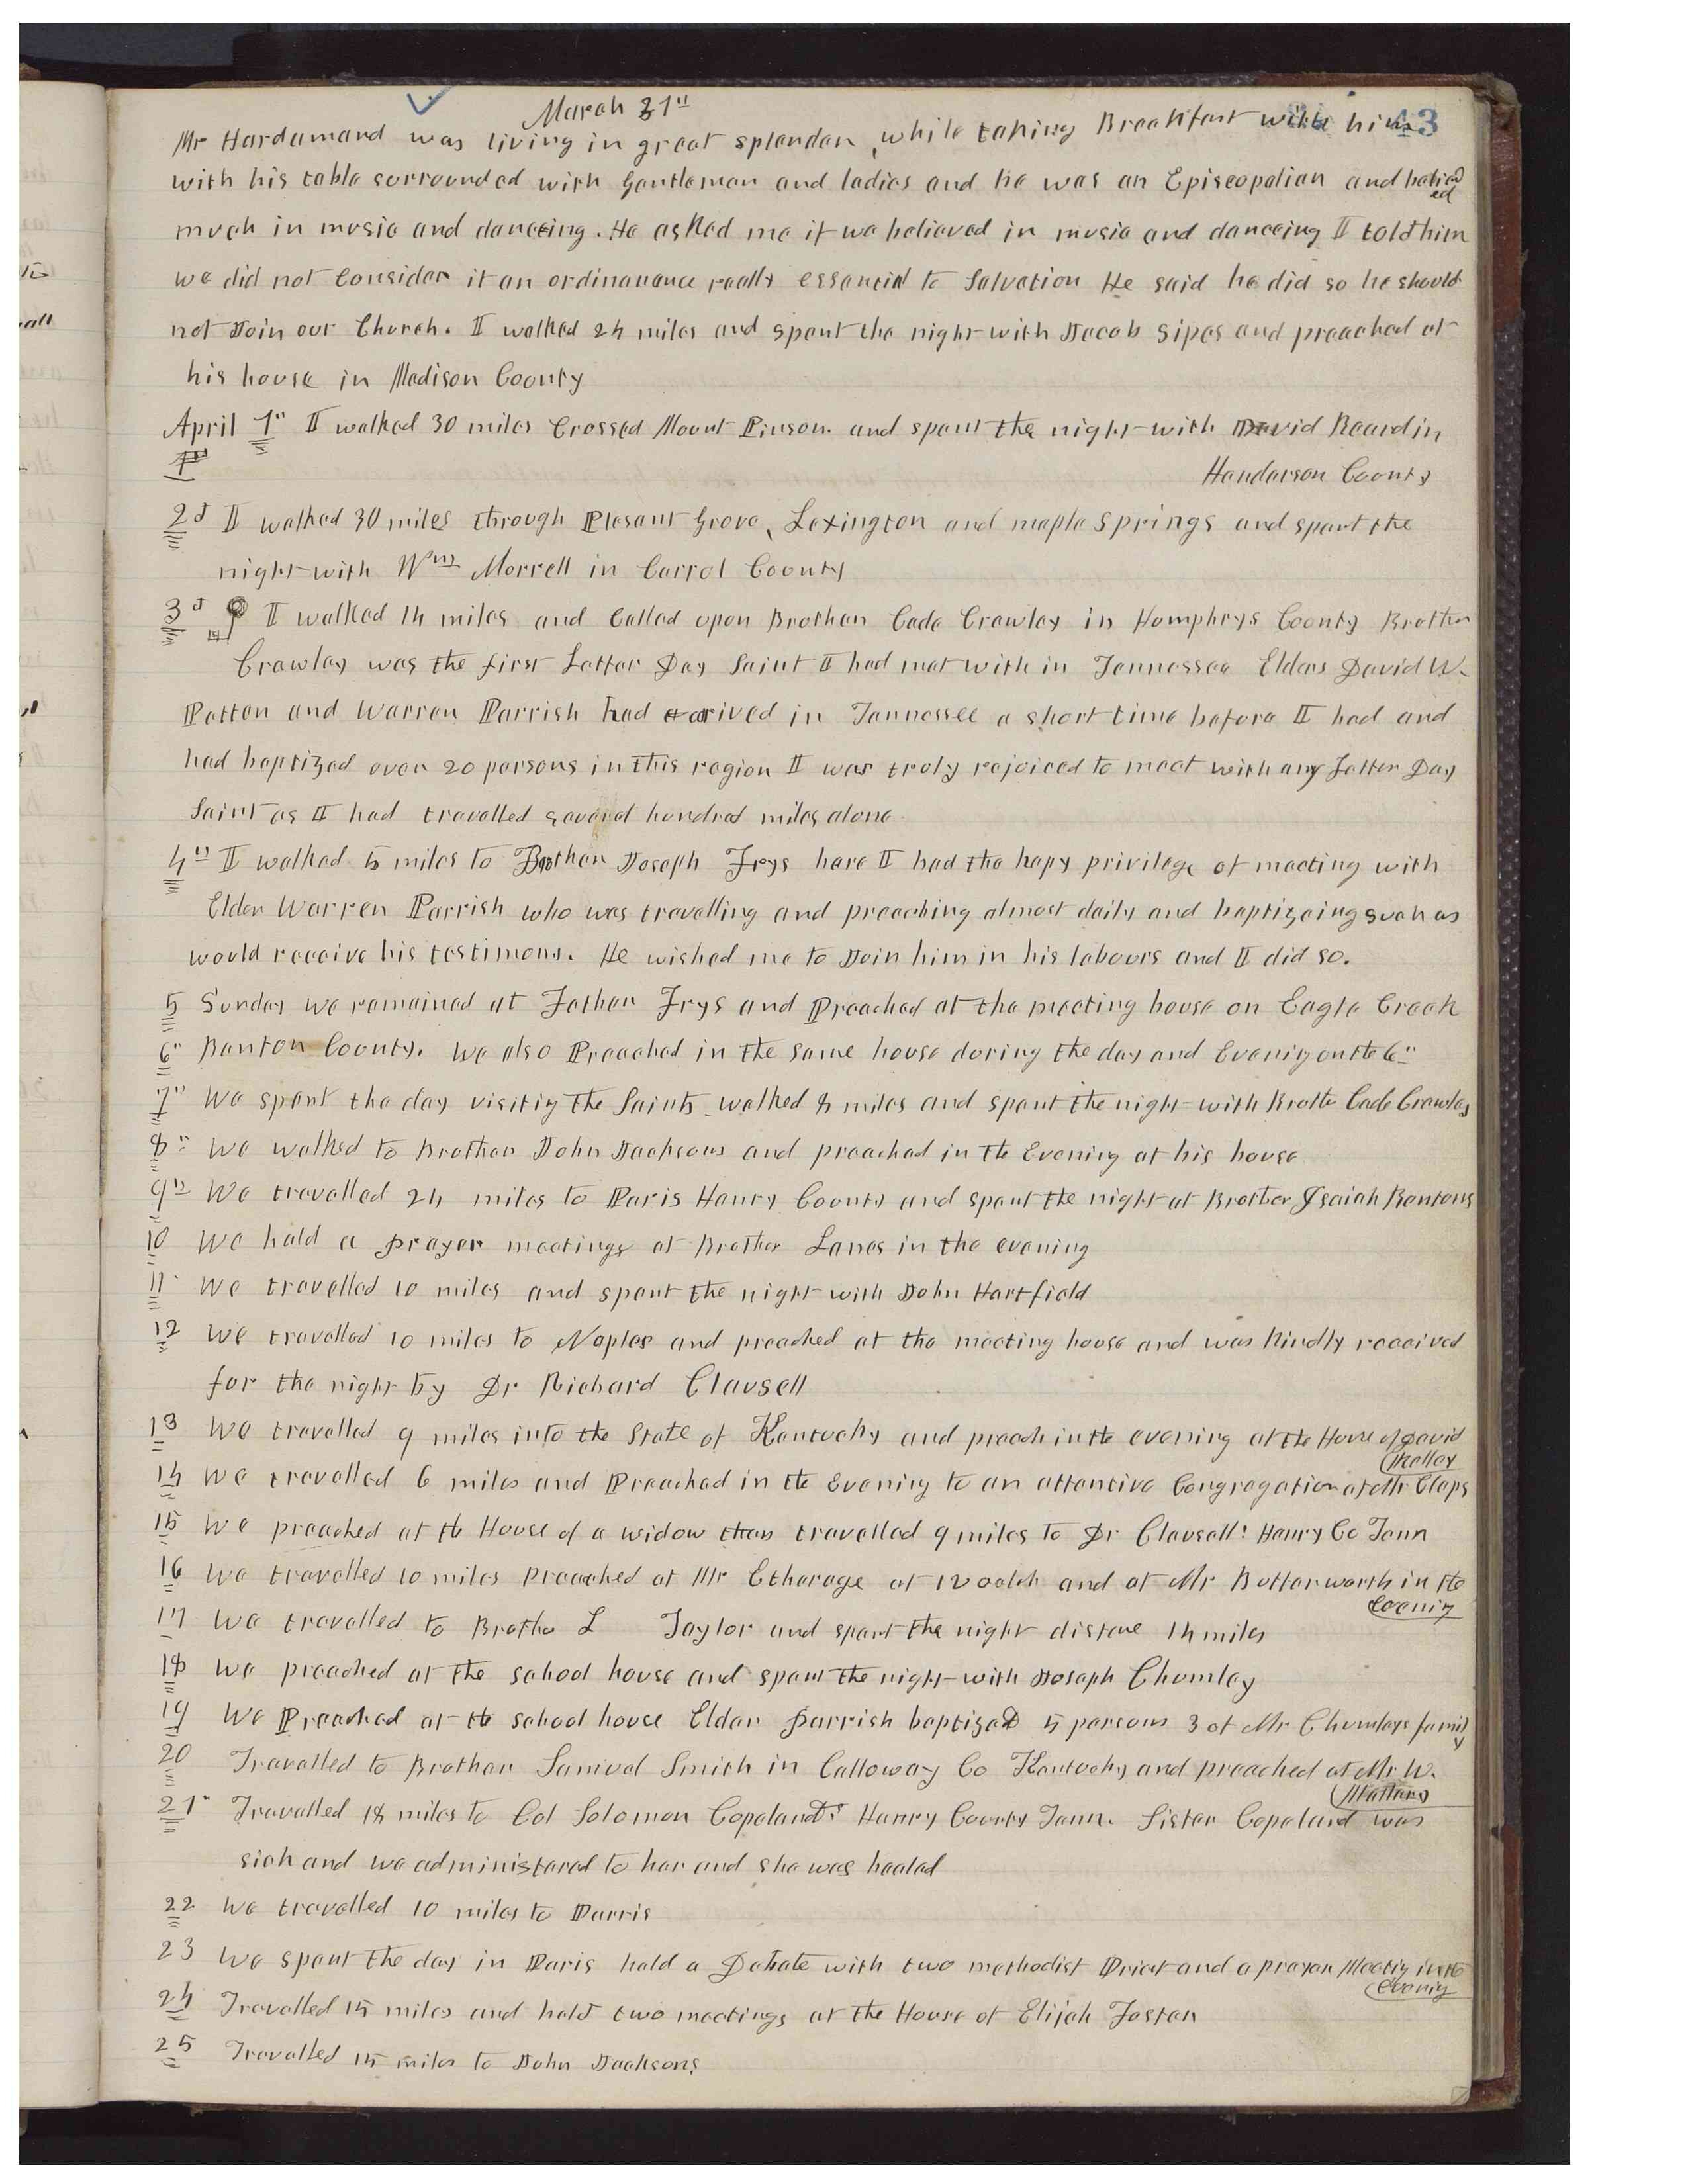 March 31"
43
Mr Hardamand was living in great splendor, while taking Breakfast with him
with his table surrounded with Gentleman and ladies and he was an Episcopalian and believed
much in music and danceing. He asked me if we believed in music and danceing I told him
we did not Consider it an ordinanance really essential to Salvation He said he did so he should
not Join our Church. I walked 24 miles and spent the night with Jacob Sipes and preached at
his house in Madison County
April 1" I walked 30 miles Crossed Mount Pinson and spent the night with David Reardin
Henderson County
2d I walked 30 miles through Plesant Grove, Lexington and maple Springs and spent the
night with Wm Morrell in Carrol County
3d I walked 14 miles and Called upon Brother Cade Crawley in Humphrys County Brother
Crawley was the first Latter Day Saint I had met with in Tennessee Elders David W.
Patten and Warren Parrish had arived in Tennessee a short time before I had and
had baptized over 20 persons in this region I was truly rejoiced to meet with any Latter Day
Saint as I had travelled several hundred miles alone
4" I walked 5 miles to Brother Joseph Frys here I had the hapy privilege of meeting with
Elder Warren Parrish who was travelling and preaching almost daily and baptizeing such as
would receive his testimony. He wished me to Join him in his labours and I did so.
5 Sunday we remained at Father Frys and Preached at the meeting house on Eagle Creek
6" Benton County. We also Preached in the same house during the day and Evening on the 6"
7" We spent the day visitig the Saints walked 8 miles and spent the night with Brother Cade Crawley
8" We walked to Brother John Jacksons and preached in the Evening at his house
9" We travelled 24 miles to Paris Henry County and spent the night at Brother Isaiah Bentons
10 We held a prayer meetings at Brother Lanes in the evening
11 We travelled 10 miles and spent the night with John Hartfield
12 We travelled 10 miles to Naples and preached at the meeting house and was Kindly received
for the night by Dr Richard Clausell
13 We travelled 9 miles into the State of Kentucky and preach in the evening at the House of David
14 We travelled 6 miles and Preached in the Evening to an attentive Congregation at Mr Claps
15 We preached at the House of a widow then travelled 9 miles to Dr Clausell's Henry Co Tenn
16 We travelled 10 miles Preached at Mr Etherage at 12 oclock and at Mr Butterworth in the
evenig
17 We travelled to Brother L Taylor and spent the night distane 14 miles
18 We preached at the school house and spent the night with Joseph Chumley
19 We Preached at the school house Elder Parrish baptized 5 persons 3 of Mr Chumleys family
20 Travelled to Brother Samuel Smith in Calloway Co Kentucky and preached at Mr W.
21" Travelled 18 miles to Col Solomon Copeland's Henry County Tenn. Sister Copeland was
sick and we administered to her and she was healed
22 We travelled 10 miles to Parris
23 We spent the day in Paris held a Debate with two methodist Priest and a prayer Meetig in the
evenig
24 Travelled 15 miles and held two meetings at the House of Elijah Foster
25 Travelled 15 miles to John Jacksons